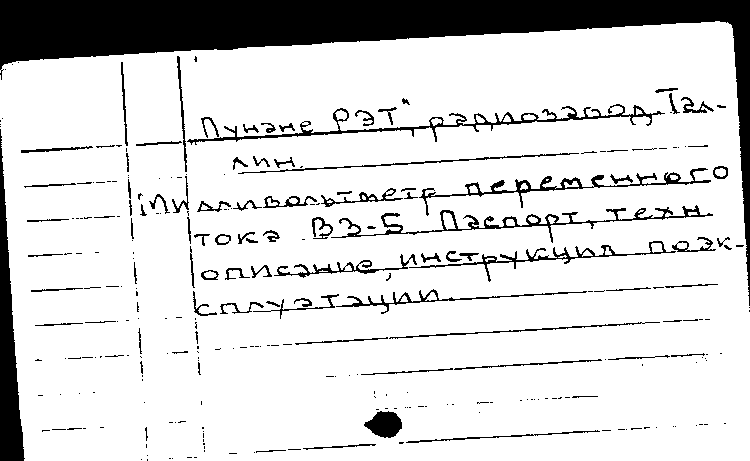 Пунане РЭТ", радиозавод. Тал-
лин.
Милливольтметр переменного
тока ВЗ-Б Паспорт, техн.
описание, инструкция по эк-
сплуатации.